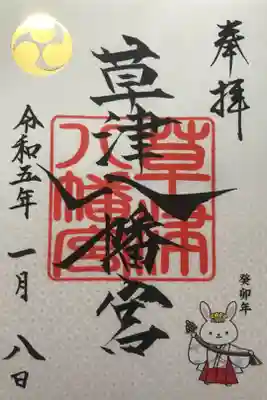 奉拝
癸卯年
草津八幡宮
草津八幡宮
令和五年一月八日